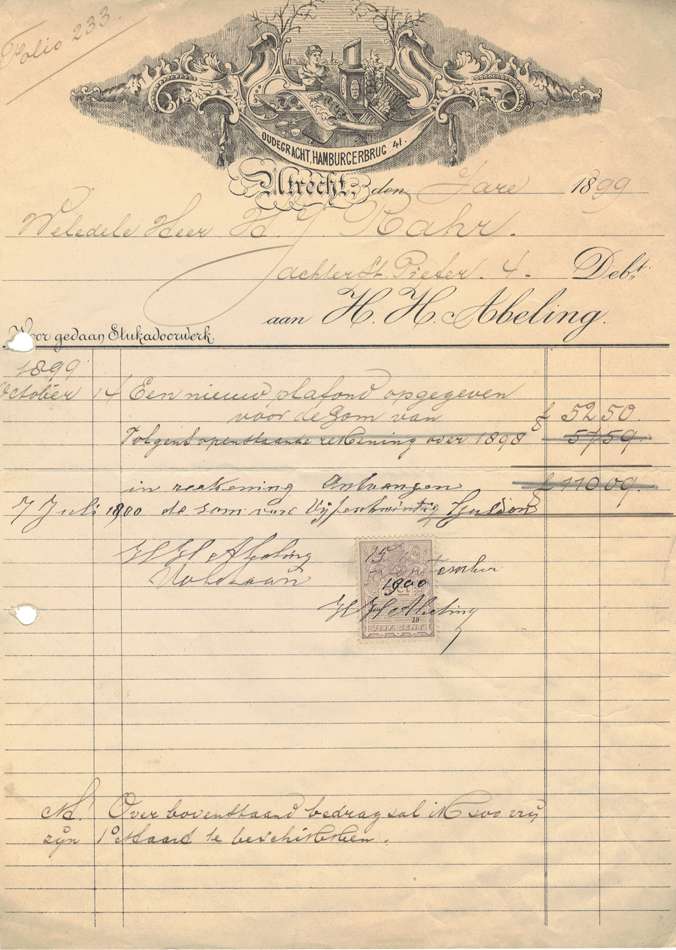 Folio 233
OUDEGRACHT, HAMBURGERBRUG 41.
Utrecht, den Jare 1899
Weledele Heer H. J. Rahr.
achter St. Pieter. 4. Debt.
aan H. H. Abeling.
Voor gedaan Stukadoorwerk
1899
October 14 Een nieuw plafond opgegeven
voor de som van f 52 50
Volgens openstaande rekening over 1898 57 59
in reekening Ontvangen f 110 09
7 Juli 1900 de som van Vijfentwintig Gulden
H H Abeling
Voldaan
15 September
1900
H H Abeling
VIJF CENT
Nb! Over bovenstaand bedrag sal ik soo vrij
zijn 1e Maart te beschikken.